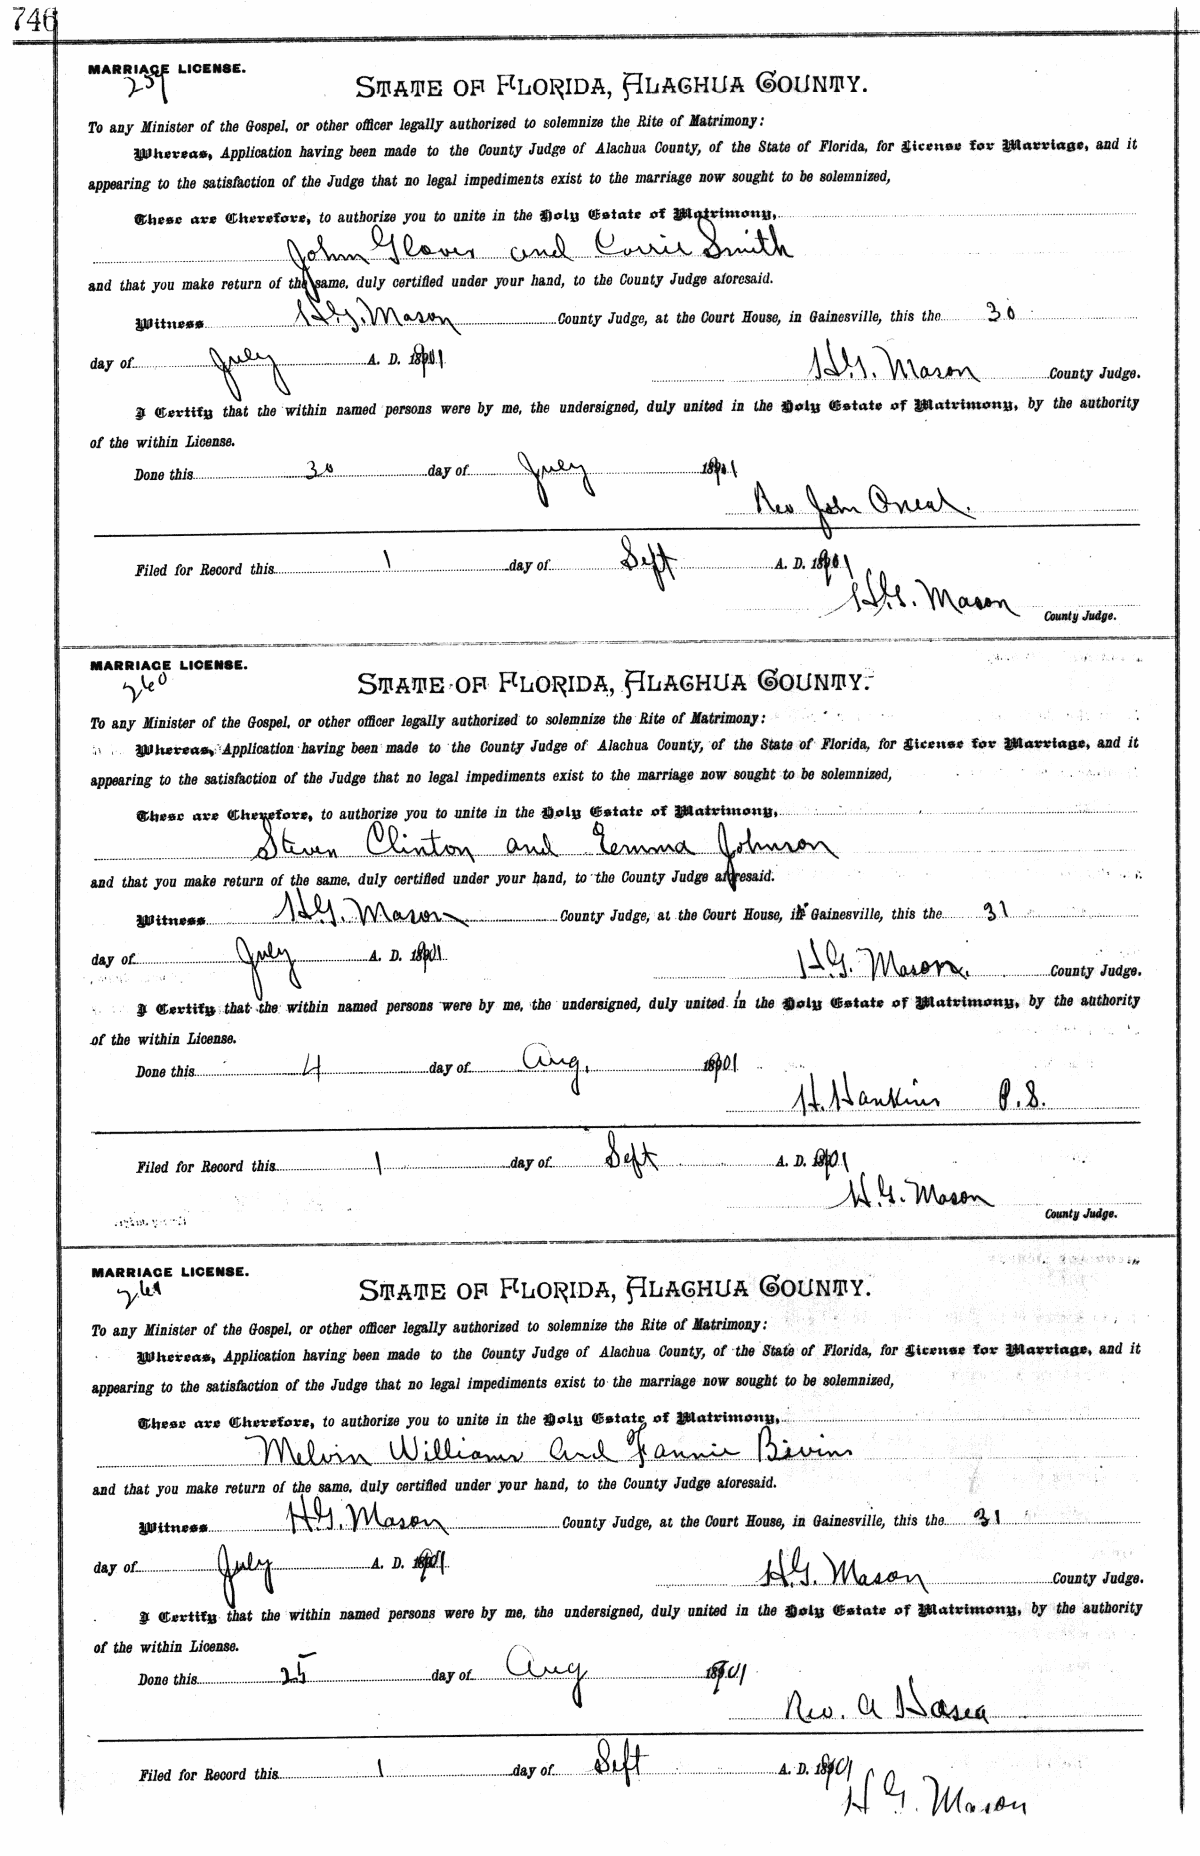 746
MARRIAGE LICENSE.
259
STATE OF FLORIDA, ALACHUA COUNTY.
To any Minister of the Gospel, or other officer legally authorized to solemnize the Rite of Matrimony:
Whereas, Application having been made to the County Judge of Alachua County, of the State of Florida, for License for Marriage, and it
appearing to the satisfaction of the Judge that no legal impediments exist to the marriage now sought to be solemnized,
These are Therefore, to authorize you to unite in the Holy Estate of Matrimony,
John Glover and Corrie Smith
and that you make return of the same, duly certified under your hand, to the County Judge aforesaid.
Witness H.G. Mason County Judge, at the Court House, in Gainesville, this the 30
day of July A. D. 1901
H.G. Mason County Judge.
I Certify that the within named persons were by me, the undersigned, duly united in the Holy Estate of Matrimony, by the authority
of the within License.
Done this 30 day of July 1901
Rev John Oneal.
Filed for Record this 1 day of Sept A. D. 1901
H.G. Mason
County Judge.
MARRIAGE LICENSE.
260
STATE OF FLORIDA, ALACHUA COUNTY.
To any Minister of the Gospel, or other officer legally authorized to solemnize the Rite of Matrimony:
Whereas, Application having been made to the County Judge of Alachua County, of the State of Florida, for License for Marriage, and it
appearing to the satisfaction of the Judge that no legal impediments exist to the marriage now sought to be solemnized,
These are Therefore, to authorize you to unite in the Holy Estate of Matrimony,
Steven Clinton and Emma Johnson
and that you make return of the same, duly certified under your hand, to the County Judge aforesaid.
Witness H.G. Mason County Judge, at the Court House, in Gainesville, this the 31
day of July A. D. 1901
H.G. Mason. County Judge.
I Certify that the within named persons were by me, the undersigned, duly united in the Holy Estate of Matrimony, by the authority
of the within License.
Done this 4 day of Aug. 1901
H. Hankins P.S.
Filed for Record this 1 day of Sept A. D. 1901
H.G. Mason
County Judge.
MARRIAGE LICENSE.
261
STATE OF FLORIDA, ALACHUA COUNTY.
To any Minister of the Gospel, or other officer legally authorized to solemnize the Rite of Matrimony:
Whereas, Application having been made to the County Judge of Alachua County, of the State of Florida, for License for Marriage, and it
appearing to the satisfaction of the Judge that no legal impediments exist to the marriage now sought to be solemnized,
These are Therefore, to authorize you to unite in the Holy Estate of Matrimony,
Melvin Williams and Fannie Bivins
and that you make return of the same, duly certified under your hand, to the County Judge aforesaid.
Witness H.G. Mason County Judge, at the Court House, in Gainesville, this the 31
day of July A. D. 1901
H.G. Mason County Judge.
I Certify that the within named persons were by me, the undersigned, duly united in the Holy Estate of Matrimony, by the authority
of the within License.
Done this 25 day of Aug 1901
Rev. A Hasea
Filed for Record this 1 day of Sept A. D. 1901
H G. Mason